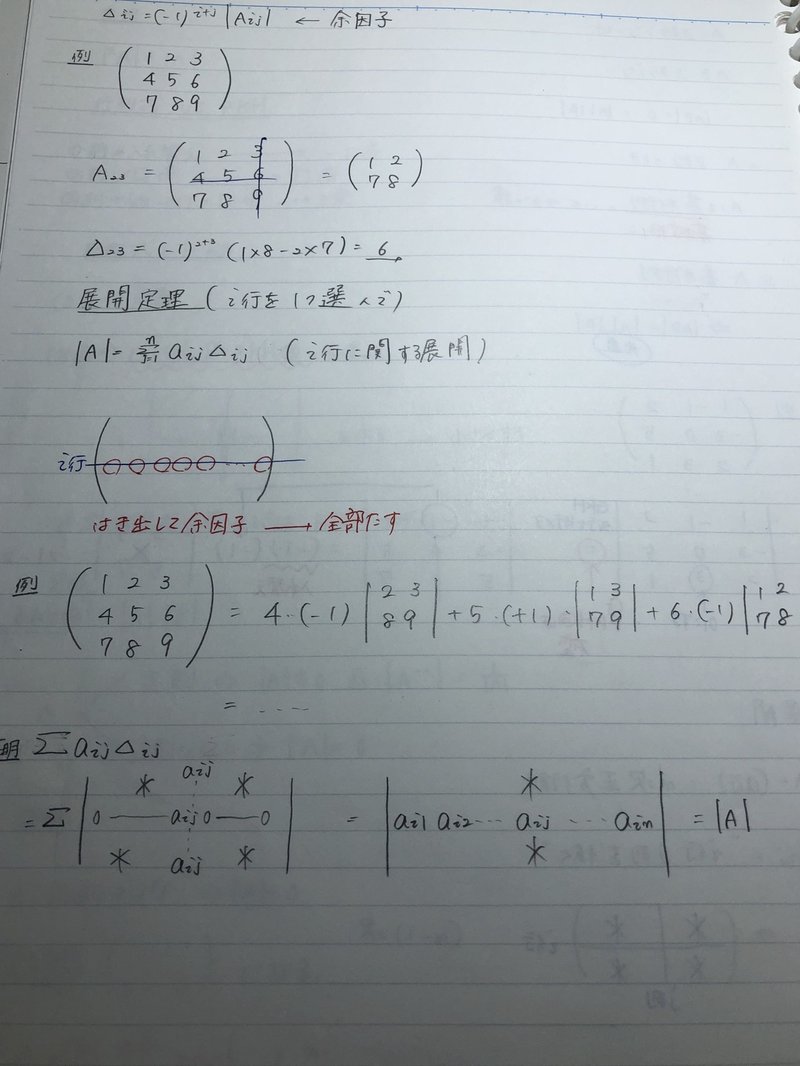 Δij = (-1)^{i+j} |Aij| ← 余因子
例 ( 1 2 3
4 5 6
7 8 9 )
A23 = ( 1 2 3
4 5 6
7 8 9 ) = ( 1 2
7 8 )
Δ23 = (-1)^{2+3} (1×8-2×7) = 6
展開定理 (i行を1つ選んで)
|A| = Σ_{j=1}^{n} aij Δij (i行に関する展開)
i行
はき出して余因子 → 全部たす
例 ( 1 2 3
4 5 6
7 8 9 ) = 4・(-1) | 2 3
8 9 | + 5・(+1)・| 1 3
7 9 | + 6・(-1) | 1 2
7 8
= ‥‥
明 Σ aij Δij
= Σ | * aij *
0 — aij 0 — 0
* aij * | = | *
ai1 ai2 … aij … ain
* | = |A|